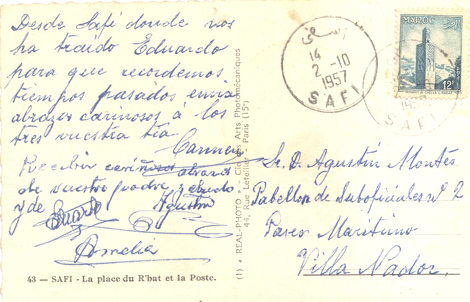 Desde Safí donde nos
ha traido Eduardo
para que recordemos
tiempos pasados envia
abrazos cariñosos á los
tres vuestra tia
Carmen
Recibir cariñoso abrazo
de vuestro padre y abuelo
y de Eduardo Agustin
Amelia
43 — SAFI - La place du R'bat et la Poste.
(1) ★ REAL-PHOTO ★ Arts Photomécaniques
44, Rue Letellier, Paris (15e)
14
2 -10
1957
SAFI
MAROC
12F
SAFI
Sr. D. Agustin Montes
Pabellon de Suboficiales nº 2
Paseo Maritimo
Villa Nador